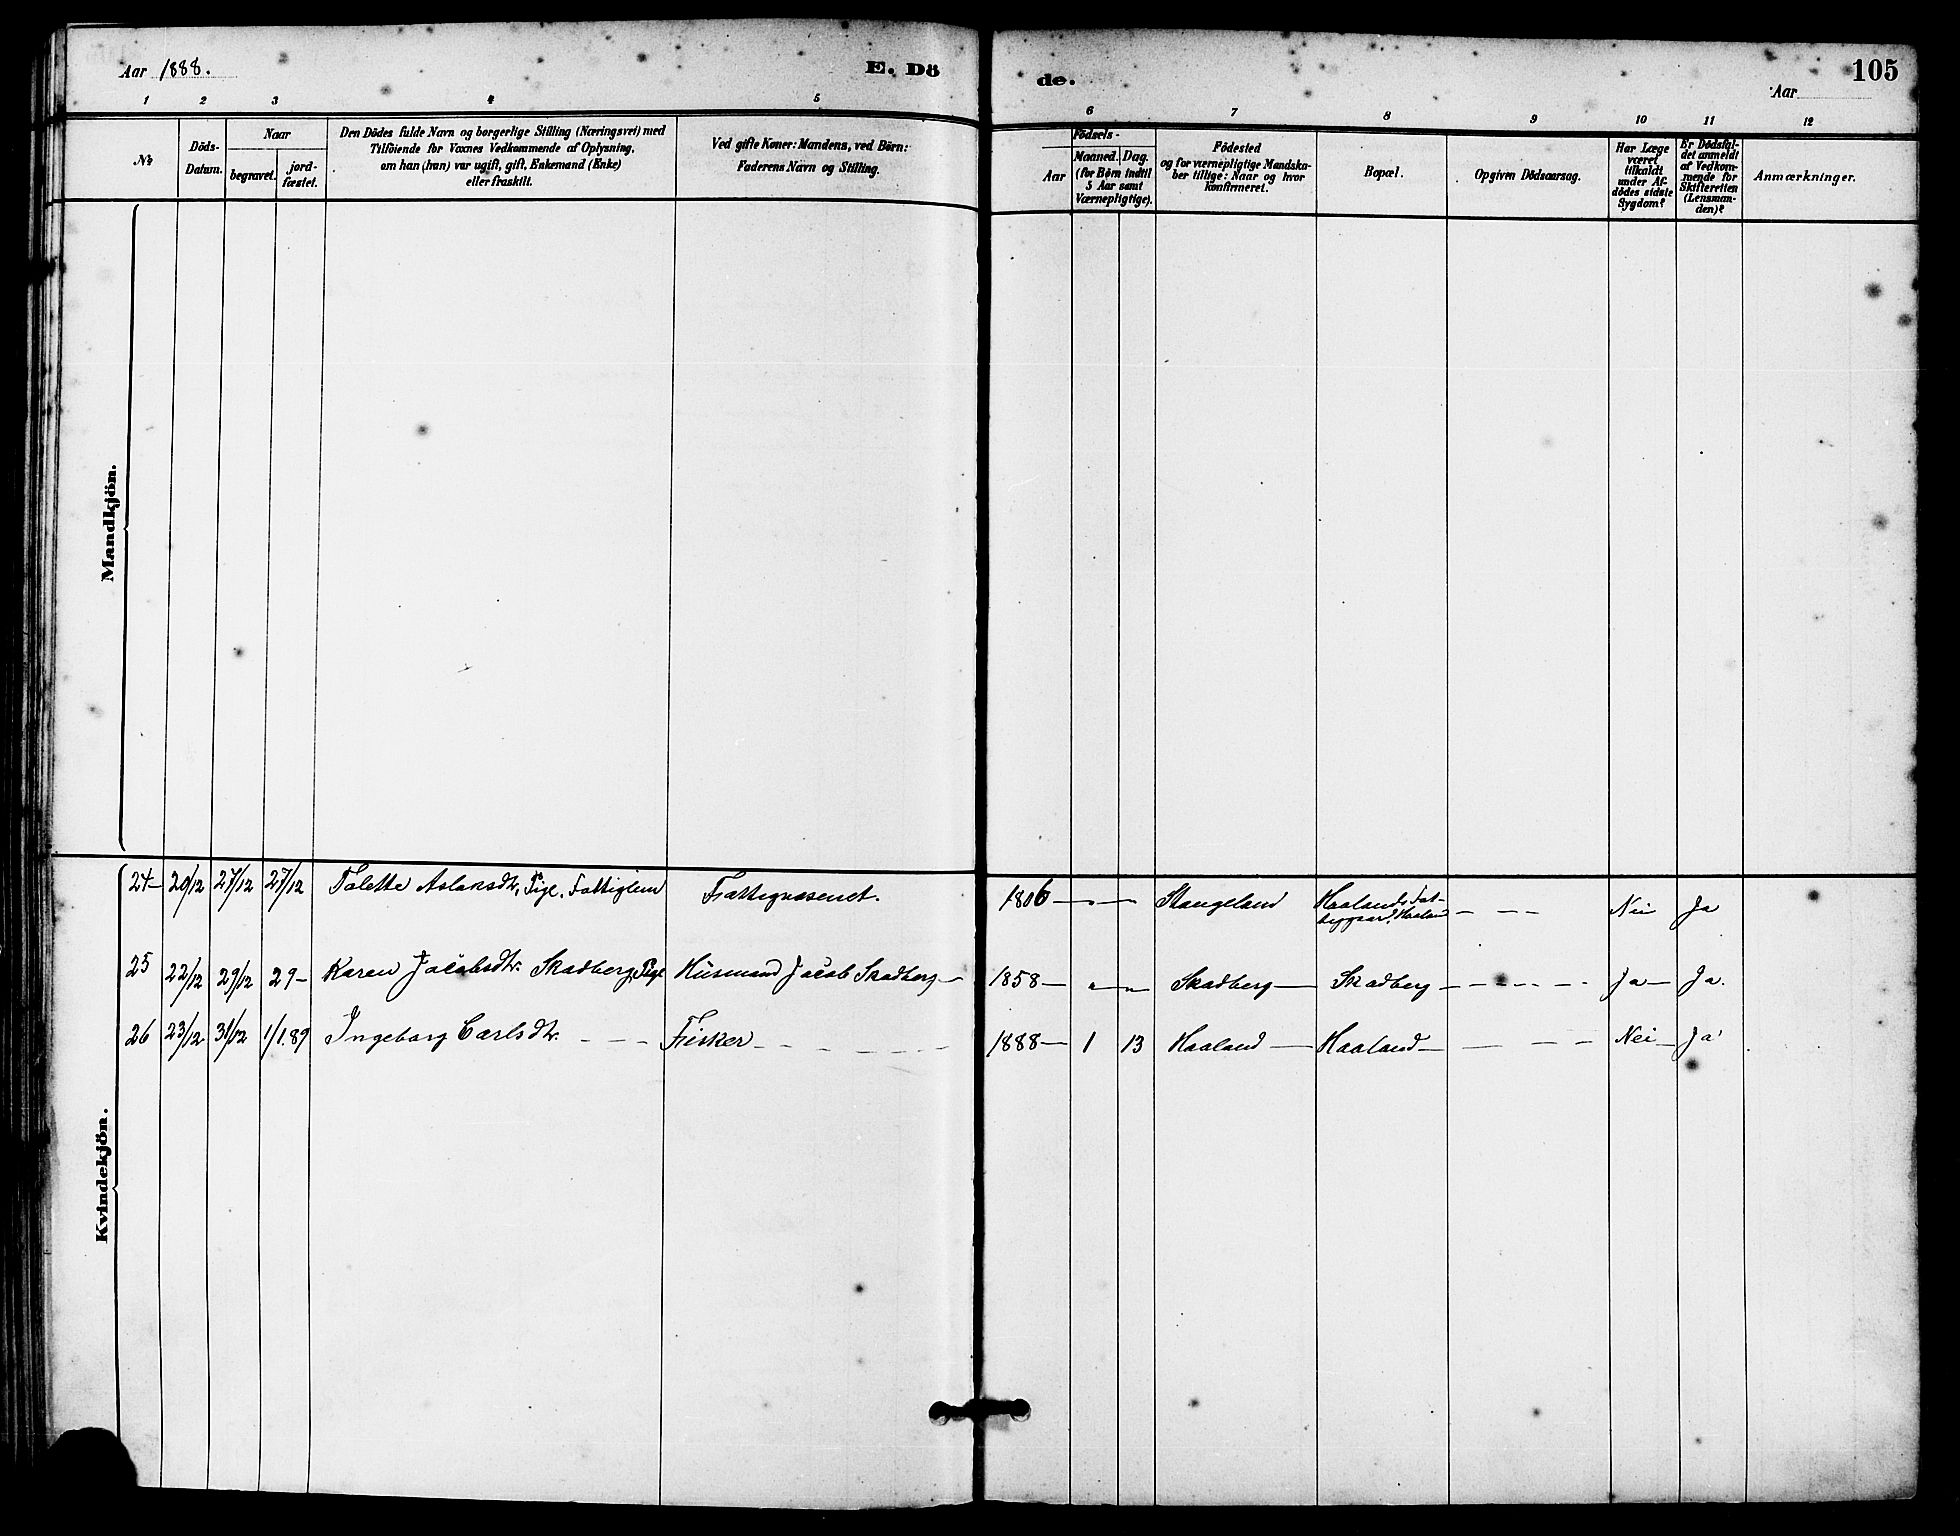 Aar 1888.
E. Dö
de.
105
Aar
1 2 3 4 5
6 7 8 9 10 11 12
No
Döds-
Datum.
Naar
begravet.
jord-
fæstet.
Den Dödes fulde Navn og borgerlige Stilling (Næringsvei) med
Tilföiende for Voxnes Vedkommende af Oplysning,
om han (hun) var ugift, gift, Enkemand (Enke)
eller fraskilt.
Ved gifte Koner: Mandens, ved Börn:
Faderens Navn og Stilling.
Födsels-
Aar
Maaned. Dag.
(for Börn indtil
5 Aar samt
Værnepligtige).
Födested
og for værnepligtige Mandska-
ber tillige: Naar og hvor
konfirmeret.
Bopæl.
Opgiven Dödsaarsag.
Har Læge
været
tilkaldt
under Af-
dödes sidste
Sygdom?
Er Dödsfal-
det anmeldt
af Vedkom-
mende for
Skifteretten
(Lensman-
den)?
Anmærkninger.
Mandkjön.
Kvindekjön.
24 — 20/12 27/12 27/12 Talette Aslaksdtr, Pige. Fattiglem Fattigvæsenet. 1806 — " — Stangeland Haaland, — — — Nei Ja
25 22/12 29/12 29 — Karen Jacobsdtr. Skadberg, Pige Husmand Jacob Skadberg — 1858 — " — " Skadberg — Skadberg — — — — — Ja — Ja.
26 23/12 31/12 1/1.89 Ingeborg Carlsdtr. — — — Fisker — — — — — — 1888 — 1 13 Haaland — Haaland — — — — Nei — Ja